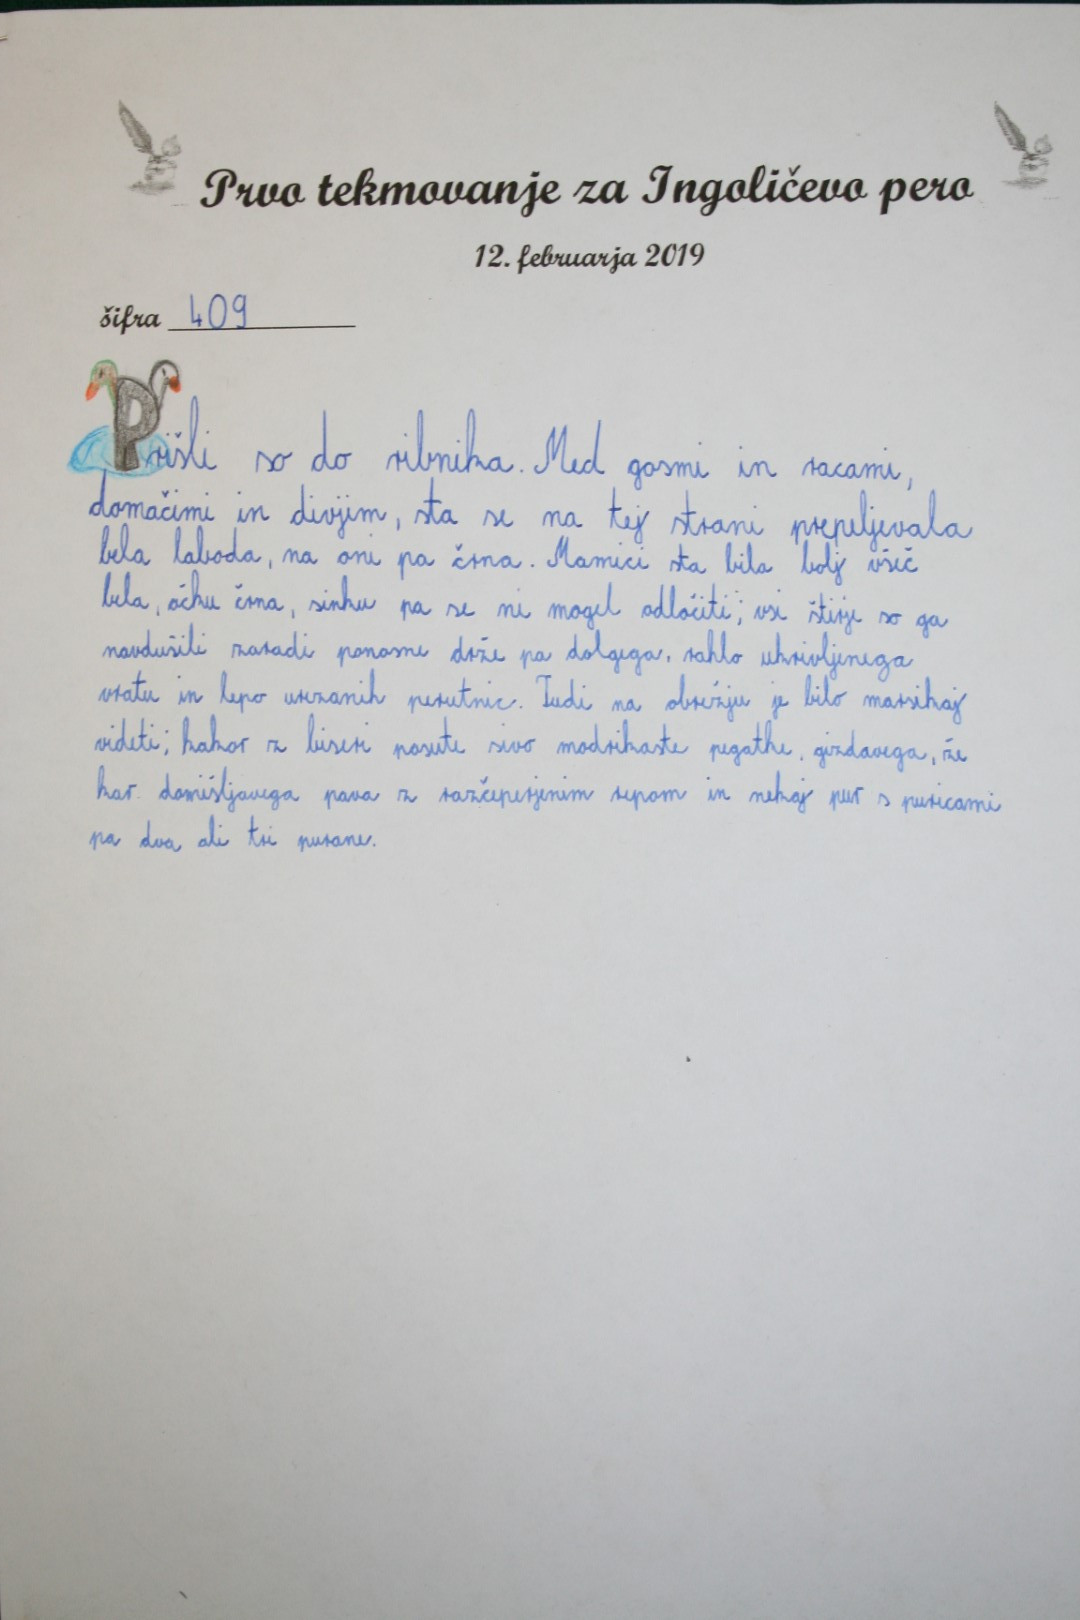 Prvo tekmovanje za Ingoličevo pero
12. februarja 2019
šifra 409
Prišli so do ribnika. Med gosmi in racami,
domačimi in divjim, sta se na tej strani prepeljevala
bela laboda, na oni pa črna. Mamici sta bila bolj všič
bela, očku črna, sinku pa se ni mogel odločiti; vsi štirje so ga
navdušili zaradi ponosne drže pa dolgega, rahlo ukrivljenega
vratu in lepo urezanih perutnic. Tudi na obrežju je bilo marsikaj
videti; kakor z biseri posute sivo modrikaste pegatke, gizdavega, že
kar domišljavega pava z razčeperjenim repom in nekaj pur s puricami
pa dva ali tri purane.